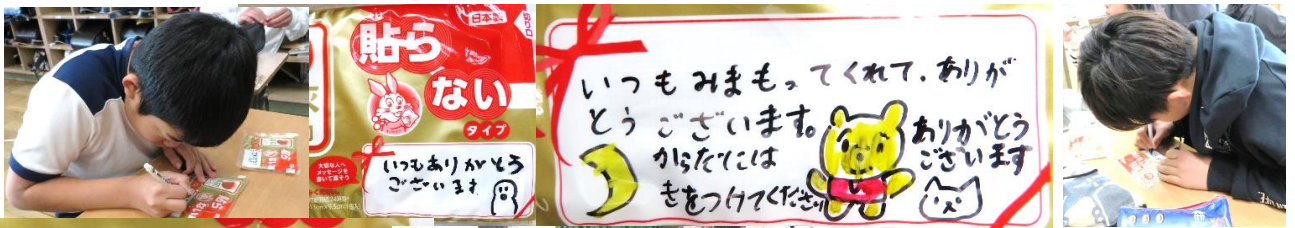 日本製
貼ら
ない
タイプ
大切な人へ
メッセージを
書いて渡そう
いつもありがとう
ございます
いつもみまもってくれて、ありが
とうございます。
からだには
きをつけてください
ありがとう
ございます